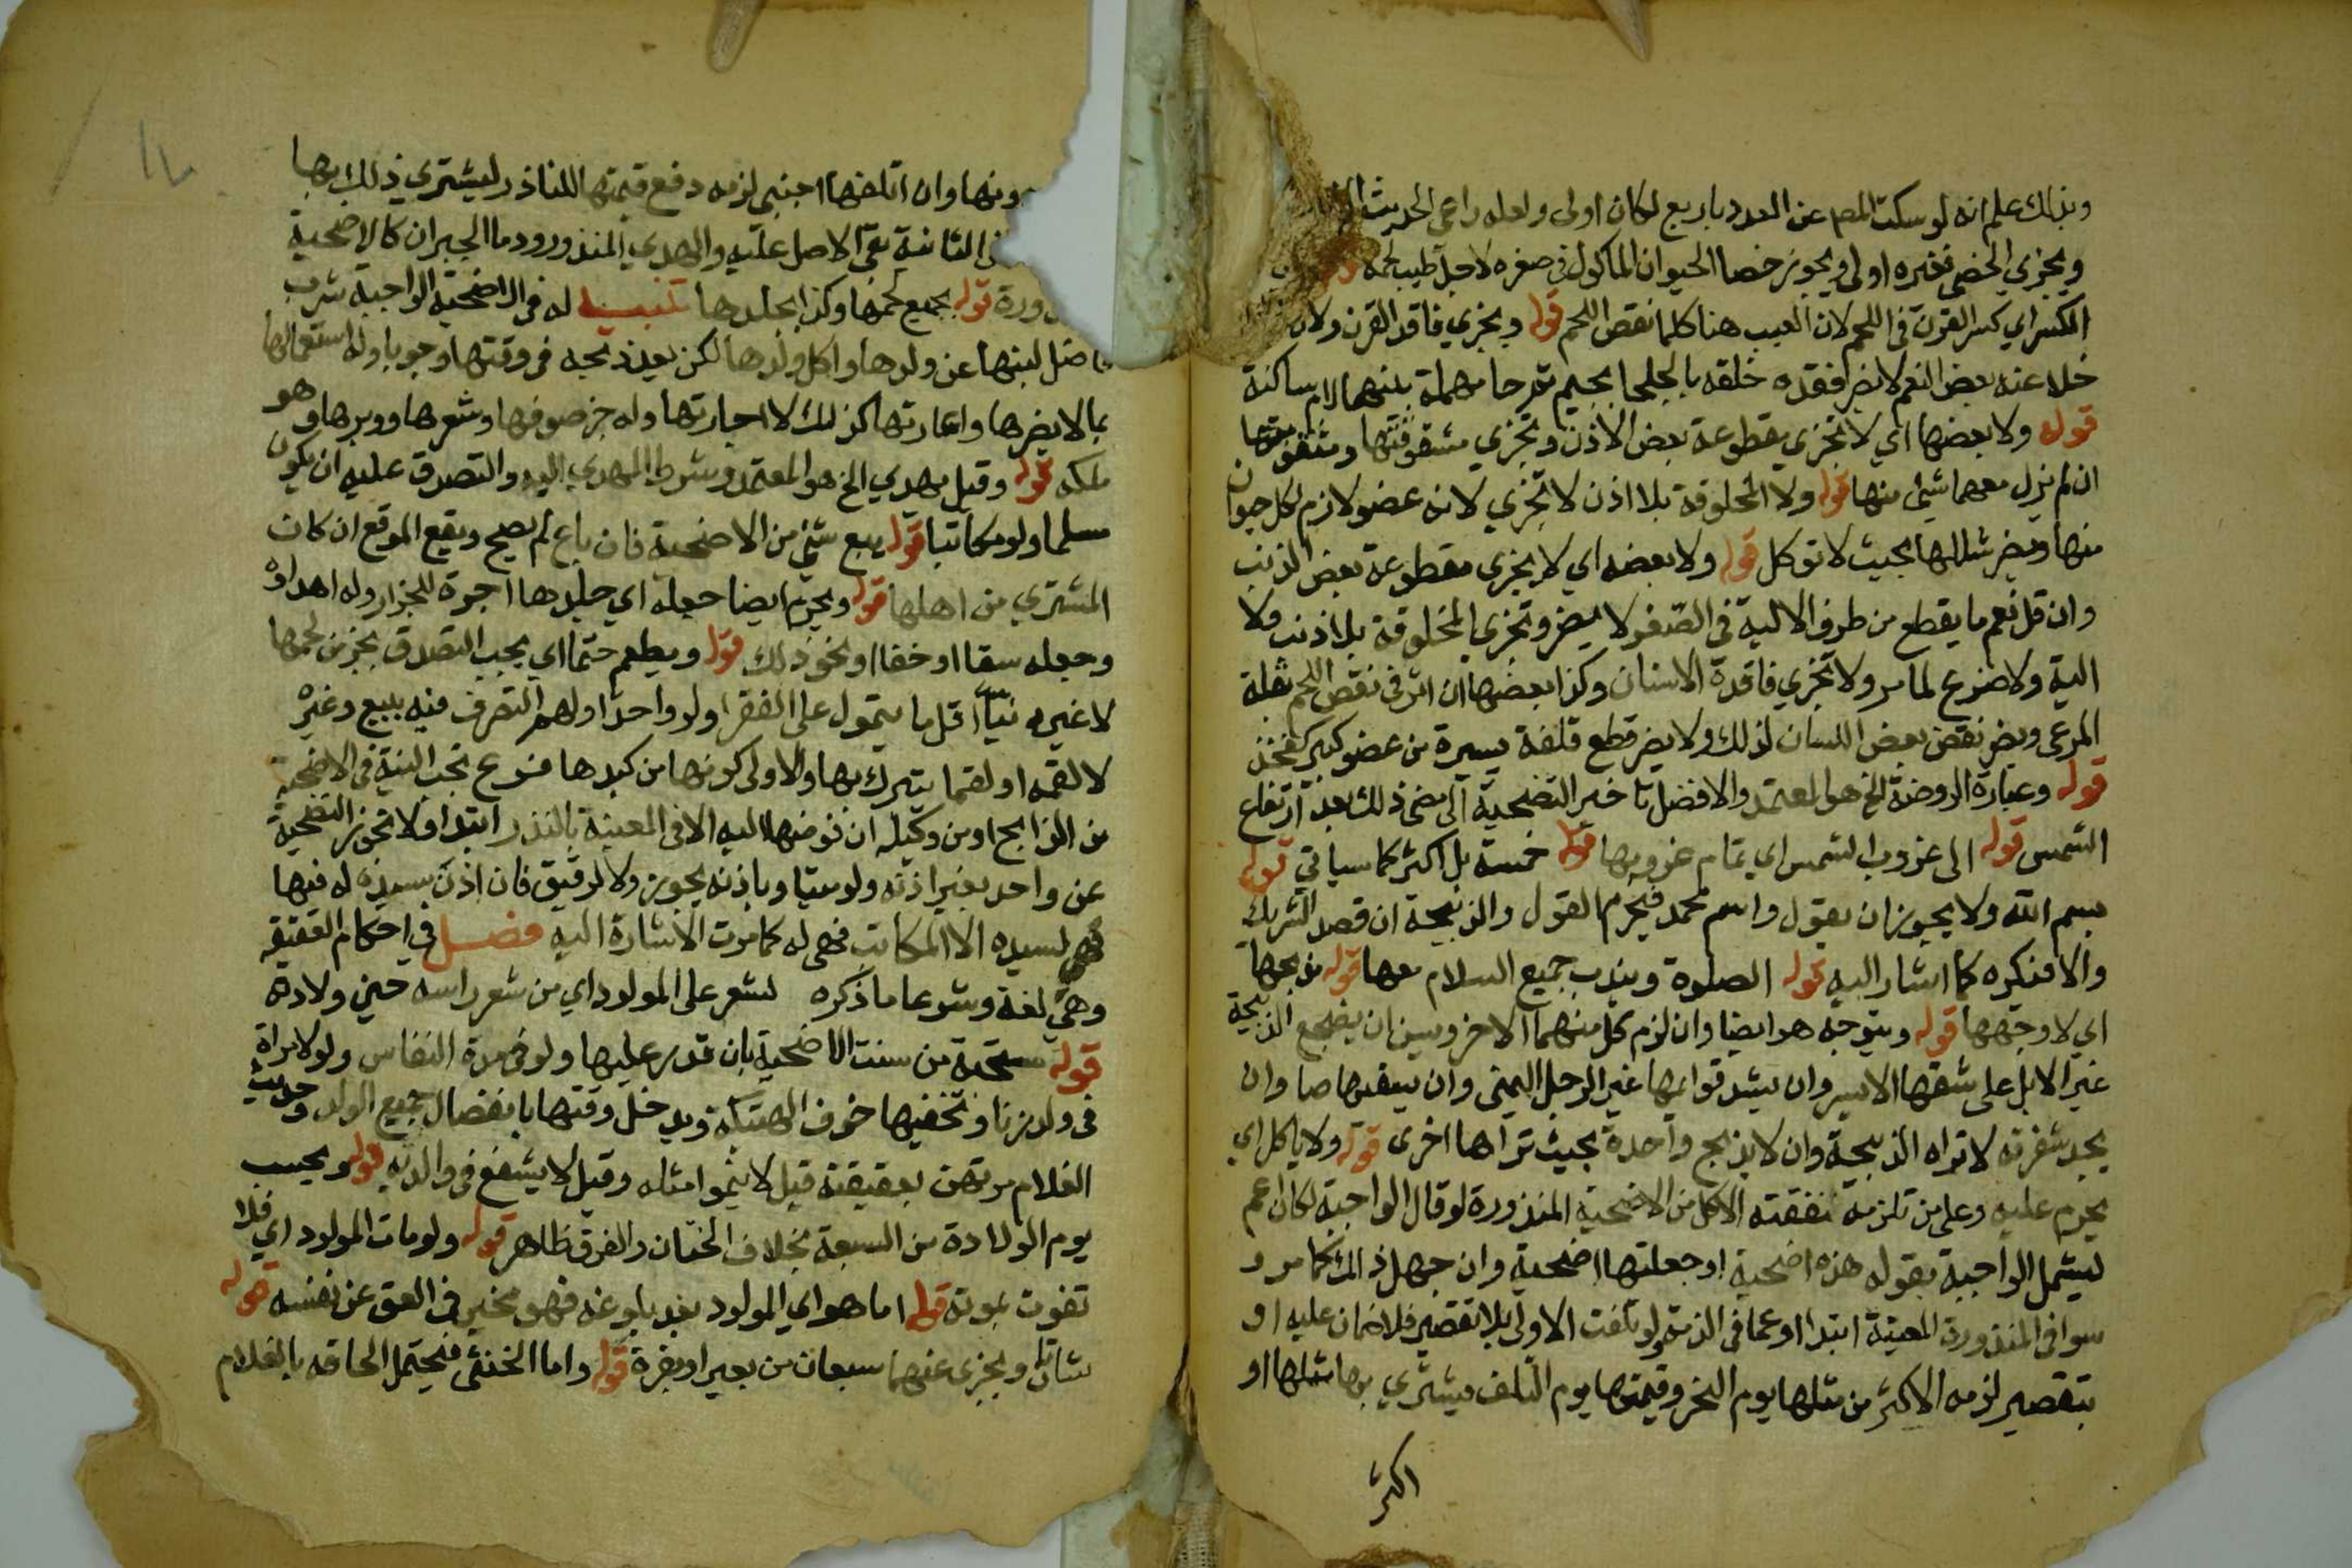 وبذلك علم انه لو سكت المص عن العدد باربع لكان اولى ولعله راعى الحديث
ويجزي الخصي فغيره اولى ويجوز خصا الحيوان الماكول في صغره لاجل طيب لحمه
الكسر اي كسر القرن في اللحم لان العيب هنا كلما نقص اللحم قوله ويجزي فاقد القرن ولان
خلا عنه بعض النعم لا يضر فقده خلقه بالجلحا بجيم فحا مهملة بينهما لام ساكنة
قوله ولا بعضها اي لا تجزي مقطوعة بعض الاذن وتجزي مشقوقتها ومثقوبتها
ان لم يزل معهما شيئ منها قوله ولا المخلوقة بلا اذن لا تجزي لانه عضو لازم لكل حيوان
منها ويضر شللها بحيث لا توكل قوله ولا بعضه اي لا يجزي مقطوعة بعض الذنب
وان قل نعم ما يقطع من طرف الالية في الصغر لا يضر وتجزي المخلوقة بلا ذنب ولا
الية ولا ضرع لما مر ولا تجزي فاقدة الاسنان وكذا بعضها ان اثر في نقص اللحم بقلة
المرعى ويضر نقص بعض اللسان لذلك ولا يضر قطع فلقة يسيرة من عضو كبير كفخذ
قوله وعبارة الروضة الخ هو المعتمد والافضل تاخير التضحية الى مضي ذلك بعد ارتفاع
الشمس قوله الى غروب الشمس اي تمام غروبها قوله خمسة بل اكثر كما سياتي قوله
بسم الله ولا يجوز ان يقول واسم محمد فيحرم القول والذبيحة ان قصد التشريك
والا فيكره كما اشار اليه قوله الصلوة ويندب جميع السلام معها قوله مذبحها
اي لا وجهها قوله ويتوجه هو ايضا وان لزم كل منهما الاخر ويسن ان يضجع الذبيحة
غير الابل على شقها الايسر وان يشد قوايمها غير الرجل اليمنى وان يعقلها صا وان
يحد شفرته لا تراه الذبيحة وان لا يذبح واحدة بحيث تراها اخرى قوله ولا ياكل اي
يحرم عليه وعلى من تلزمه نفقته الاكل من الاضحية المنذورة لو قال الواجبة لكان اعم
ليشمل الواجبة بقوله هذه اضحية او جعلتها اضحية وان جهل ذالك كما مر و
سوا في المنذورة المعينة ابتدا او عما في الذمة ولو تلفت الاولى بلا تقصير فلا ضمان عليه او
بتقصير لزمه الاكثر من مثلها يوم النحر وقيمتها يوم التلف ويشتري بها مثلها او
اكثر
ونها وان اتلفها اجنبي لزمه دفع قيمتها للناذر ليشتري ذلك بها
في الثانية بقي الاصل عليه والهدي المنذور ودما الجبران كالاضحية
ورة قوله بجميع لحمها وكذا بجلدها تنبيه له في الاضحية الواجبة شرب
فاضل لبنها عن ولدها واكل ولدها لكن بعد ذبحه في وقتها وجوبا وله استعمالها
بما لا يضرها واعارتها كذلك لا اجارتها وله جز صوفها وشعرها ووبرها وهو
ملكه قوله وقيل يهدي الخ هو المعتمد وشرط المهدي اليه والتصدق عليه ان يكون
مسلما ولو مكاتبا قوله بيع شيئ من الاضحية فان باع لم يصح ويقع الموقع ان كان
المشتري من اهلها قوله ويحرم ايضا جعله اي جلدها اجرة للجزار وله اهداؤه
وجعله سقا او خفا او نحو ذلك قوله ويطعم حتما اي يجب التصدق بجز من لحمها
لا غيره نيا اقل ما يتمول على الفقرا ولو واحدا ولهم التصرف فيه ببيع وغيره
لا لقمه او لقما يتبرك بها والاولى كونها من كبدها فرع تجب النية في الاضحية
من الذابح او من وكيله ان فوضها اليه الا في المعينة بالنذر ابتدا ولا تجوز التضحية
عن واحد بغير اذنه ولو ميتا وباذنه يجوز ولا لرقيق فان اذن سيده له فيها
فهي لسيده الا المكاتب فهي له كما مرت الاشارة اليه فصل في احكام العقيقه
وهي لغة وشرعا ما ذكره لشعر على المولود اي من شعر راسه حين ولادته
قوله مستحبة من سنت الاضحية بان قدر عليها ولو في مدة النفاس ولو لامراة
في ولد زنا وتخفيها خوف الهتيكة ويدخل وقتها بانفصال جميع الولد وحديث
الغلام مرتهن بعقيقته قيل لا ينمو امثاله وقيل لا يشفع في والديه قوله ويحسب
يوم الولادة من السبعة بخلاف الختان والفرق ظاهر قوله ولو مات المولود اي فلا
تفوت بموته قوله اما هو اي المولود بعد بلوغه فهو مخير في العق عن نفسه قوله
شاتان ويجزي عنهما سبعان من بعير او بقرة قوله واما الخنثى فيحتمل الحاقه بالغلام